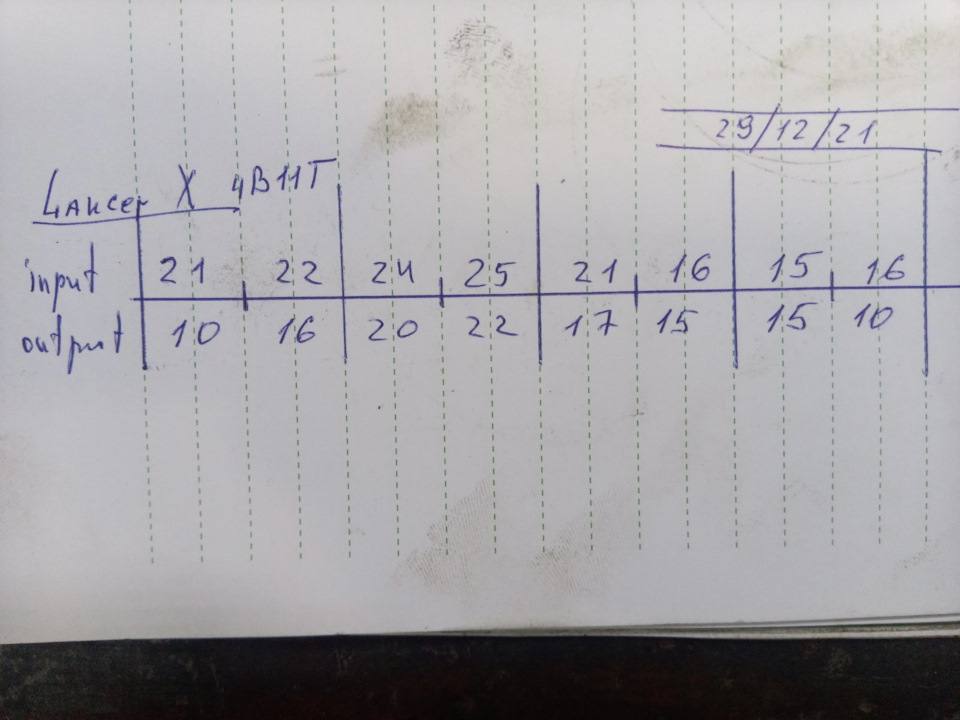 29/12/21
Lancer X 4B11T
input 21 22 24 25 21 16 15 16
output 10 16 20 22 17 15 15 10